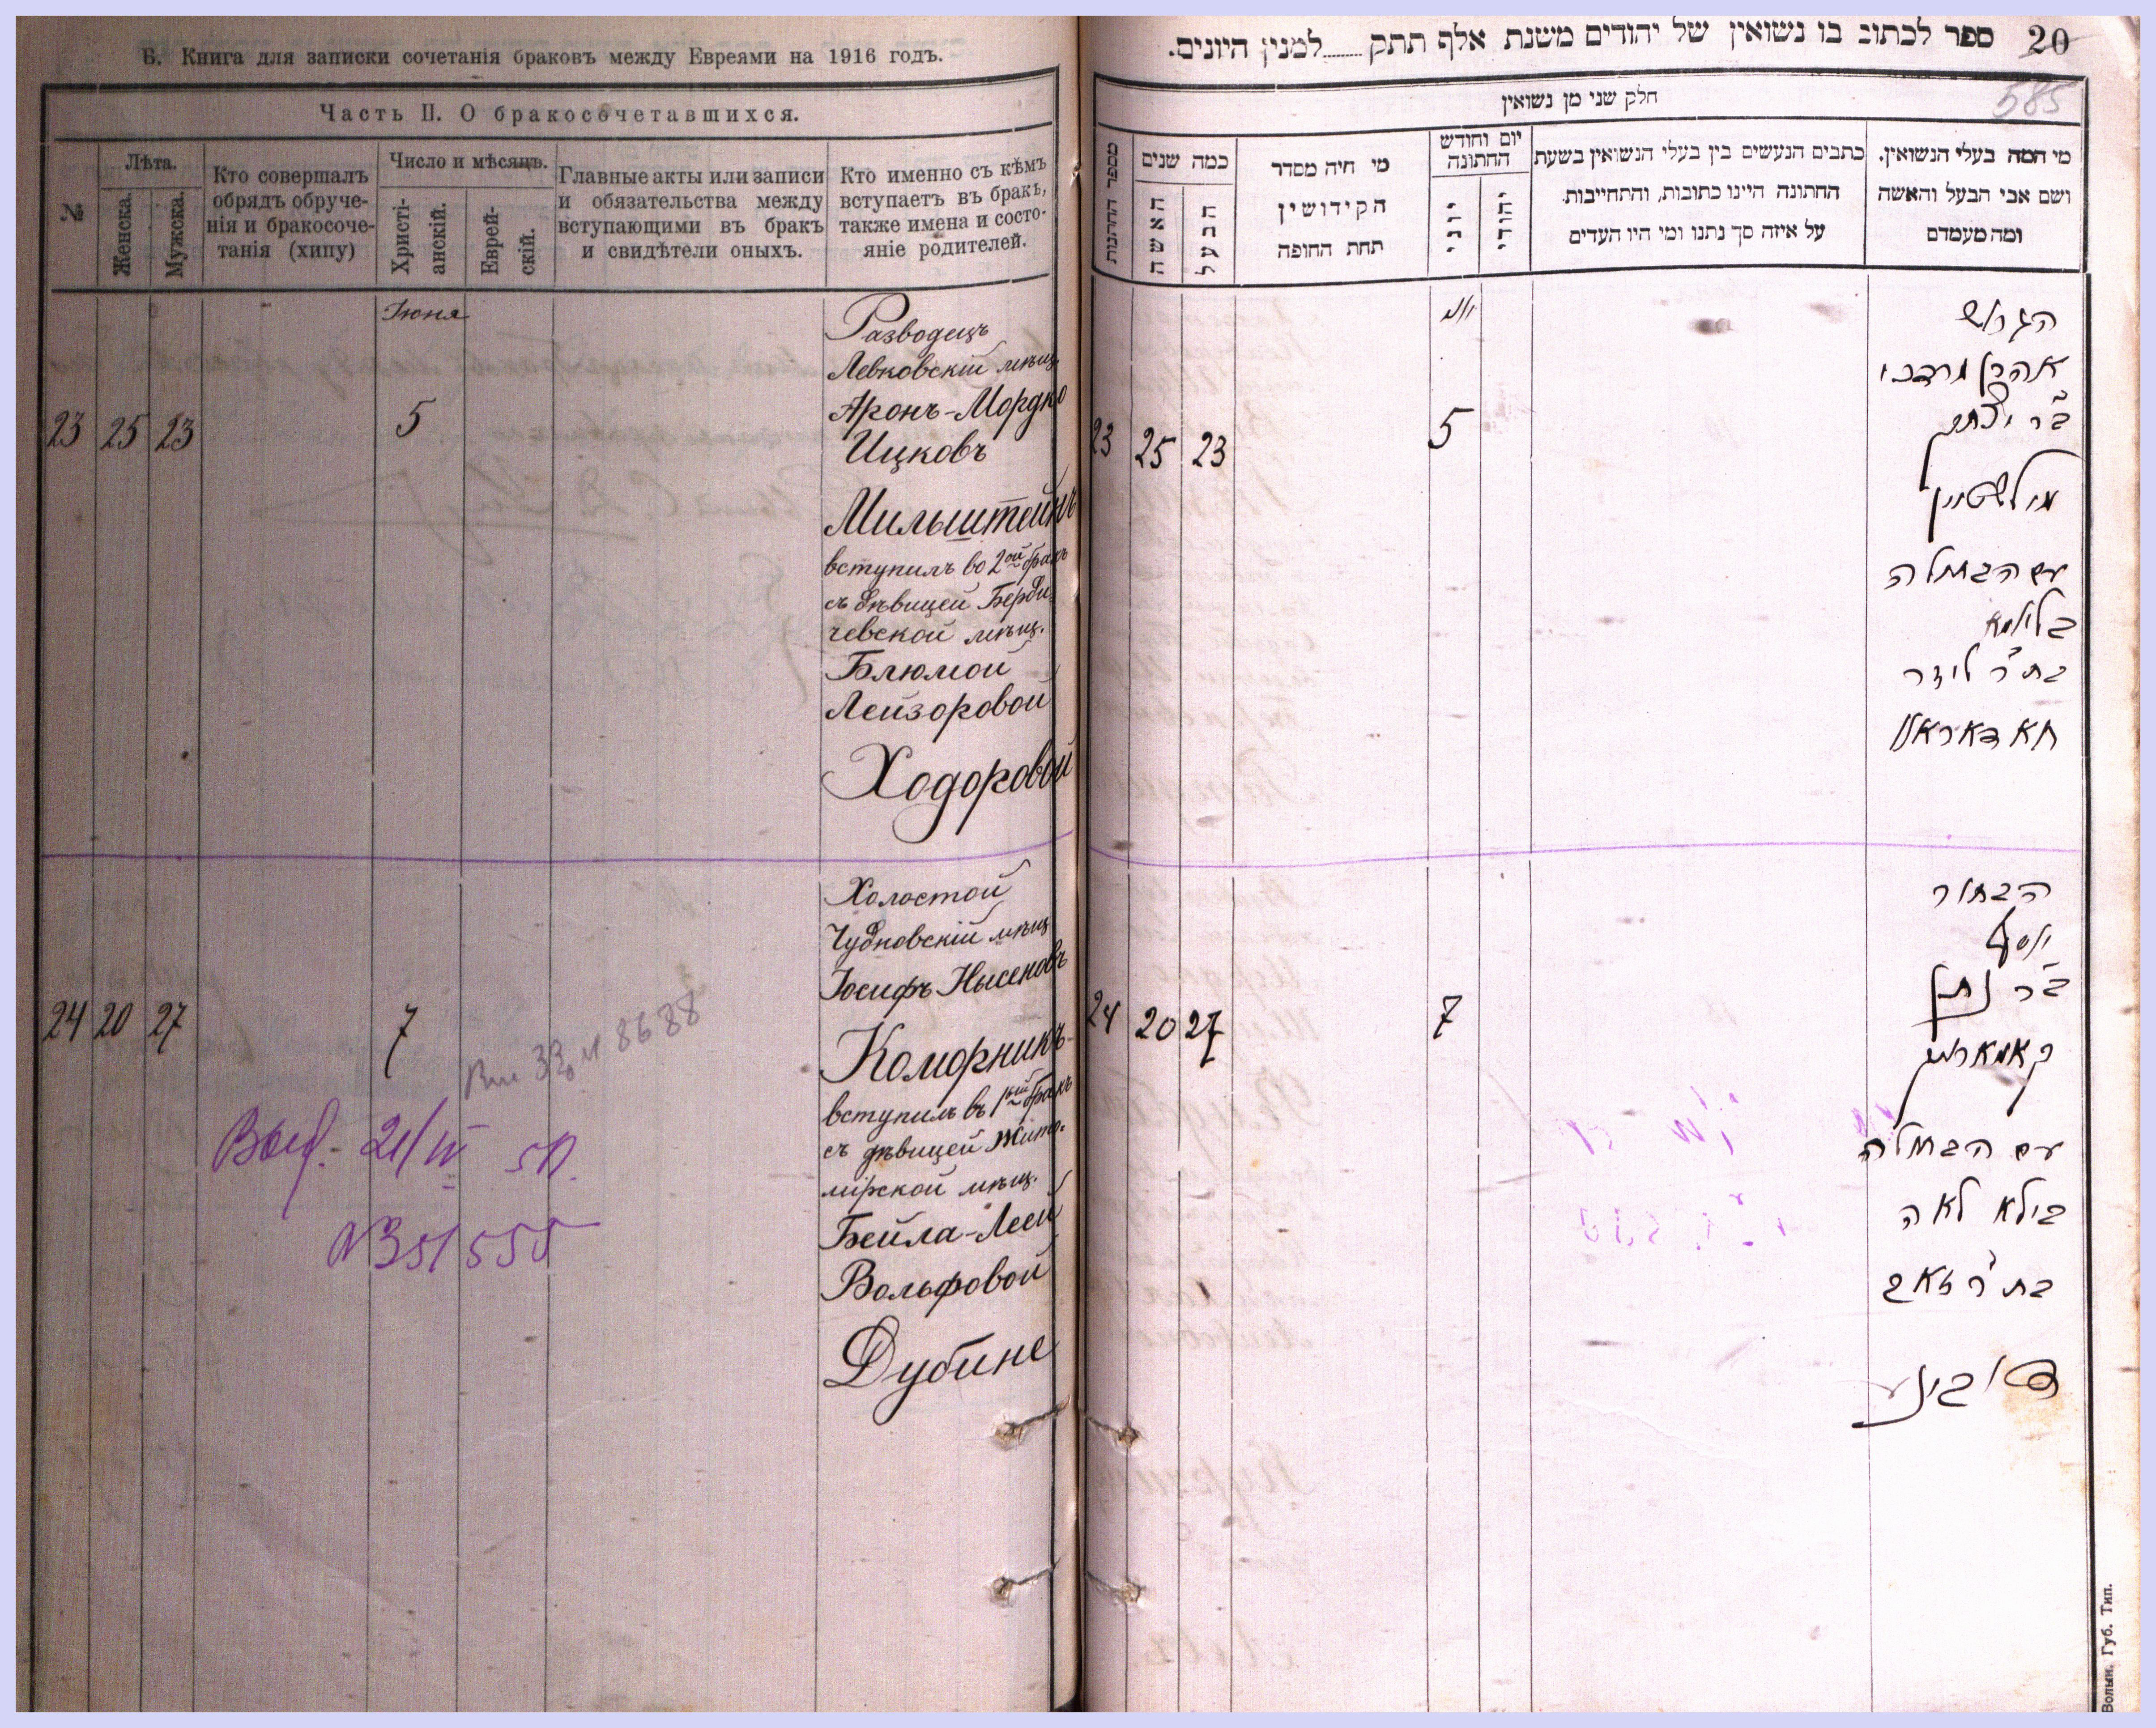 Б. Книга для записки сочетанія браковъ между Евреями на 1916 годъ.
Часть II. О бракосочетавшихся.
№
Лѣта.
Женска.
Мужска.
Кто совершалъ
обрядъ обруче-
нія и бракосоче-
танія (хипу)
Число и мѣсяцъ.
Христі-
анскій.
Еврей-
скій.
Главные акты или записи
и обязательства между
вступающими въ бракъ
и свидѣтели оныхъ.
Кто именно съ кѣмъ
вступаетъ въ бракъ,
также имена и состо-
яніе родителей.
Іюня
23 25 23 5
Разводецъ
Левковскій мѣщ.
Аронъ-Мордко
Ицковъ
Мильштейнъ
вступилъ во 2ой бракъ
съ дѣвицей Берди-
чевской мѣщ.
Блюмой
Лейзоровой
Ходоровой
24 20 27 7
Холостой
Чудновскій мѣщ
Іосифъ Нысеновъ
Коморникъ
вступилъ въ 1ый бракъ
съ дѣвицей Жито-
мірской мѣщ.
Бейла-Леей
Вольфовой
Дубине
8688
Выд. 21/IV 51.
№351555
20
585
ספר לכתוב בו נשואין של יהודים משנת אלף תתק......למנין היונים.
חלק שני מן נשואין
מספר החתונות
כמה שנים
האשה
הבעל
מי חיה מסדר
הקידושין
תחת החופה
יום וחודש
החתונה
יוני
יהודי
כתבים הנעשים בין בעלי הנשואין בשעת
החתונה היינו כתובות, והתחייבות
על איזה סך נתנו ומי היו העדים
מי המה בעלי הנשואין,
ושם אבי הבעל והאשה
ומה מעמדם
יוני
23 25 23 5
הגרוש
אהרן מרדכי
ב״ר יצחק
מילשטיין
עם הבתולה
בלומא
בת ר׳ ליזר
חאדאראוו
24 20 27 7
הבחור
יוסף
ב״ר נתן
קאמארניק
עם הבתולה
בילא לאה
בת ר׳ זאב
דובינע
Волын. Губ. Тип.